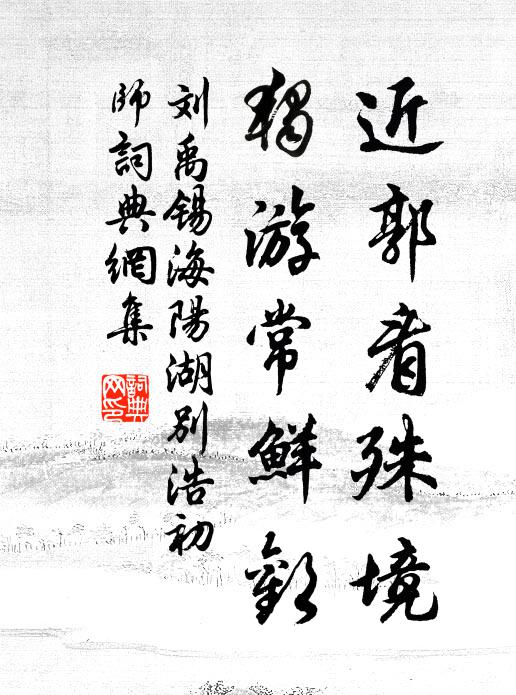 近郭看殊境
獨游常鮮歡
刘禹錫海陽湖别浩初
師詞典網集
詞典
网印